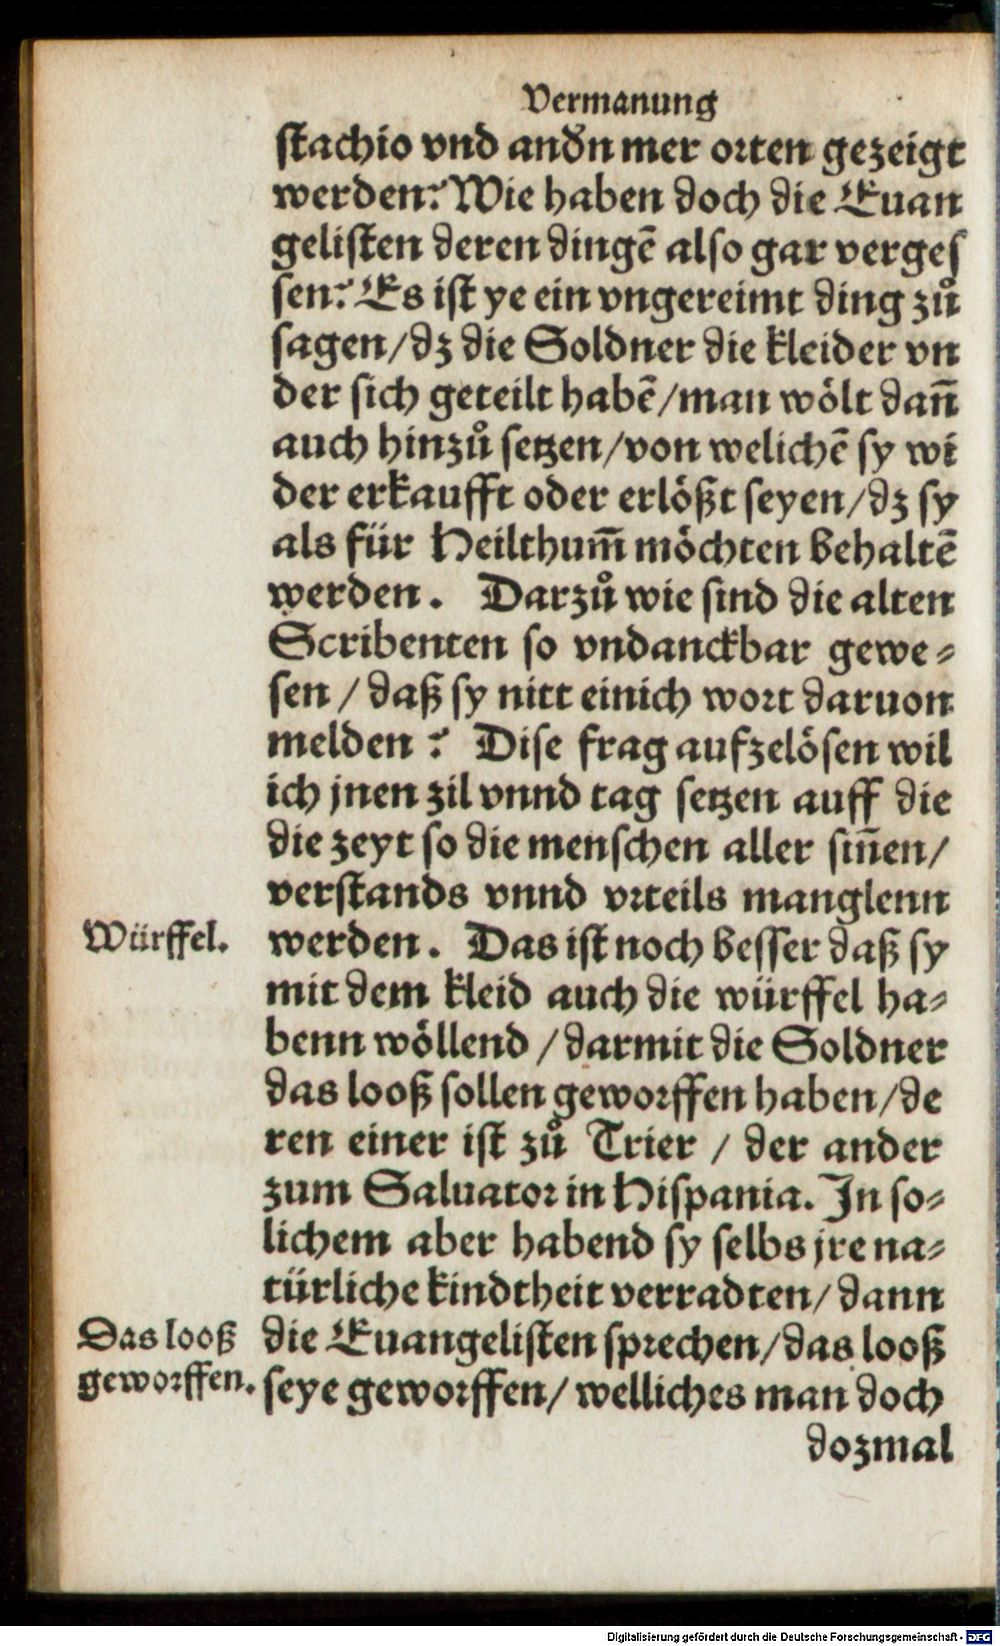 Vermanung
ſtachio vnd andn̄ mer orten gezeigt
werden? Wie haben doch die Euan
geliſten deren dingē alſo gar vergeſ
ſen? Es iſt ye ein vngereimt ding zů
ſagen/dz die Soldner die kleider vn
der ſich geteilt habē/man wölt dañ
auch hinzů ſetzen/von welichē ſy wi
der erkaufft oder erlößt ſeyen/dz ſy
als für Heilthum̄ möchten behaltē
werden. Darzů wie ſind die alten
Scribenten ſo vndanckbar gewe⸗
ſen / daß ſy nitt einich wort daruon
melden? Diſe frag aufzelöſen wil
ich jnen zil vnnd tag ſetzen auff die
die zeyt ſo die menſchen aller ſiñen/
verſtands vnnd vrteils manglenn
Würffel.
werden. Das iſt noch beſſer daß ſy
mit dem kleid auch die würffel ha⸗
benn wöllend / darmit die Soldner
das looß ſollen geworffen haben/de
ren einer iſt zů Trier / der ander
zum Saluator in Hiſpania. In ſo⸗
lichem aber habend ſy ſelbs jre na⸗
türliche kindtheit verradten/ dann
Das looß
geworffen.
die Euangeliſten ſprechen/das looß
ſeye geworffen/ welliches man doch
dozmal
Digitalisierung gefördert durch die Deutsche Forschungsgemeinschaft - DFG